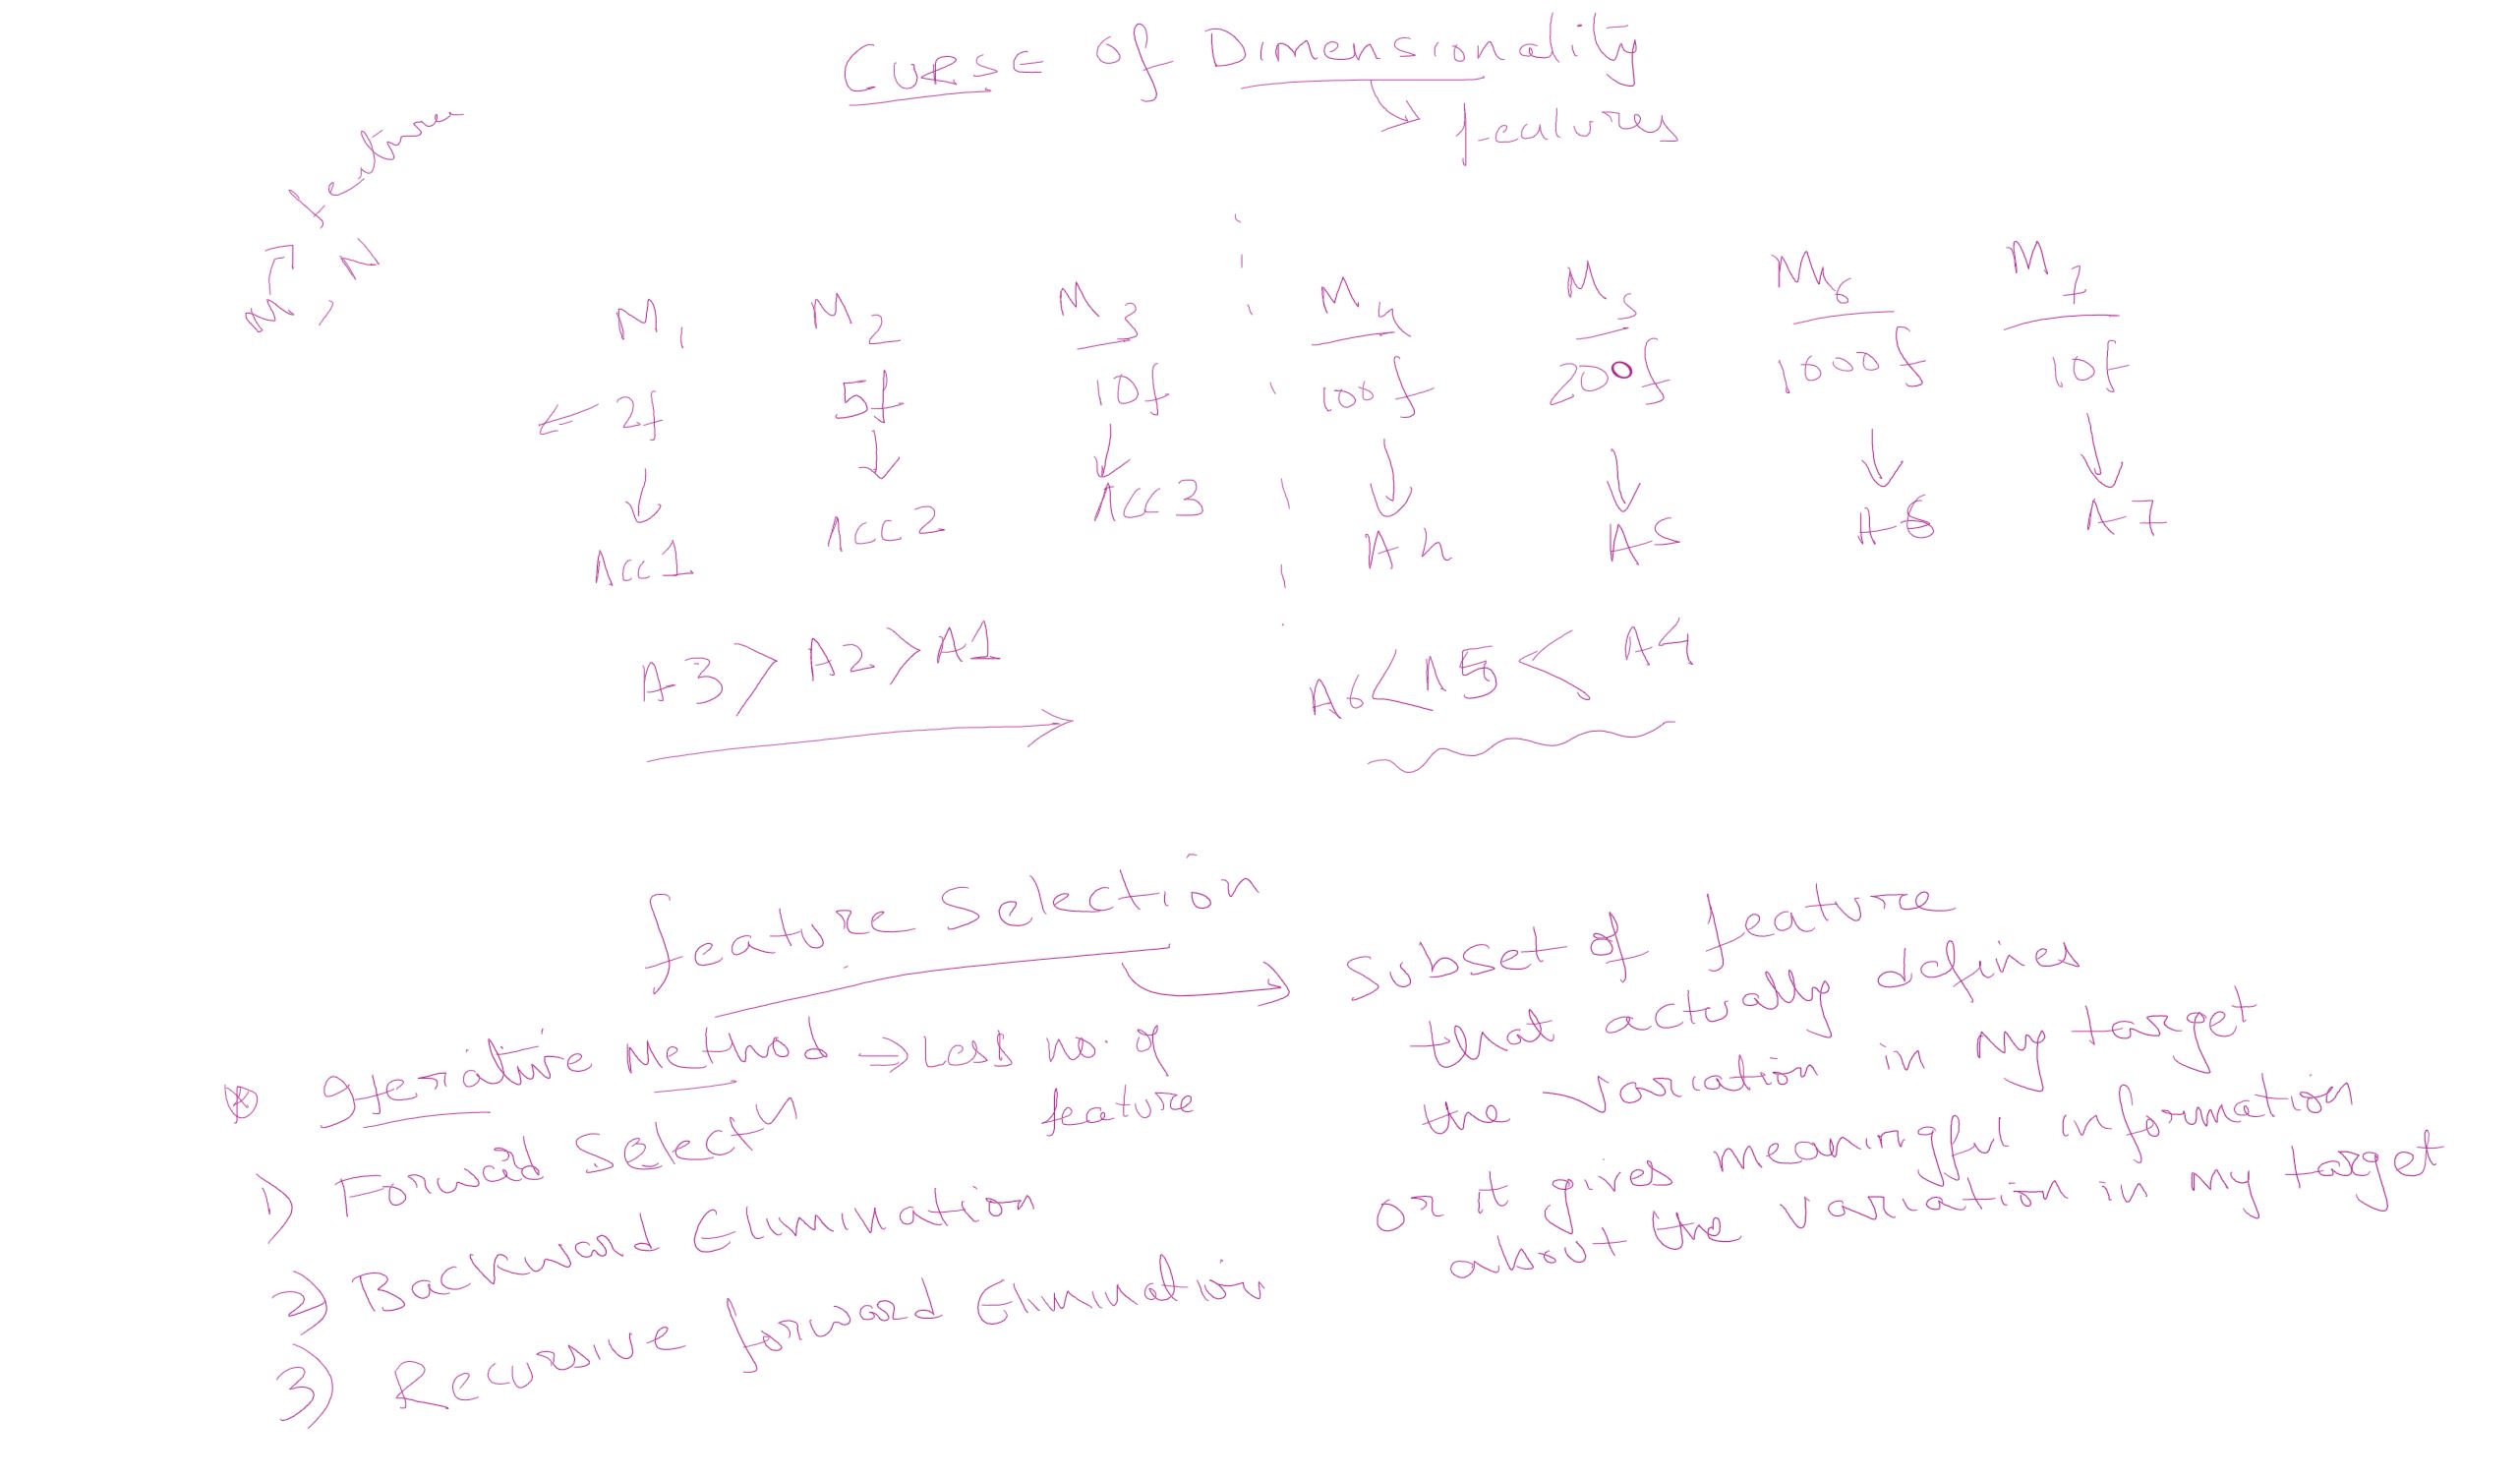 Curse of Dimensionality
features
feature
m, N
M1 M2 M3 M4 M5 M6 M7
2f 5f 10f 100f 200f 1000f 10f
Acc1 Acc2 Acc3 A4 A5 A6 A7
A3 > A2 > A1
A6 < A5 < A4
feature Selection
Subset of feature
that actually defines
the variation in my target
or it gives meaningful information
about the variation in my target
Iterative Method → Less no. of
feature
1) Forward Selectn
2) Backward Elimination
3) Recursive forward Elimination